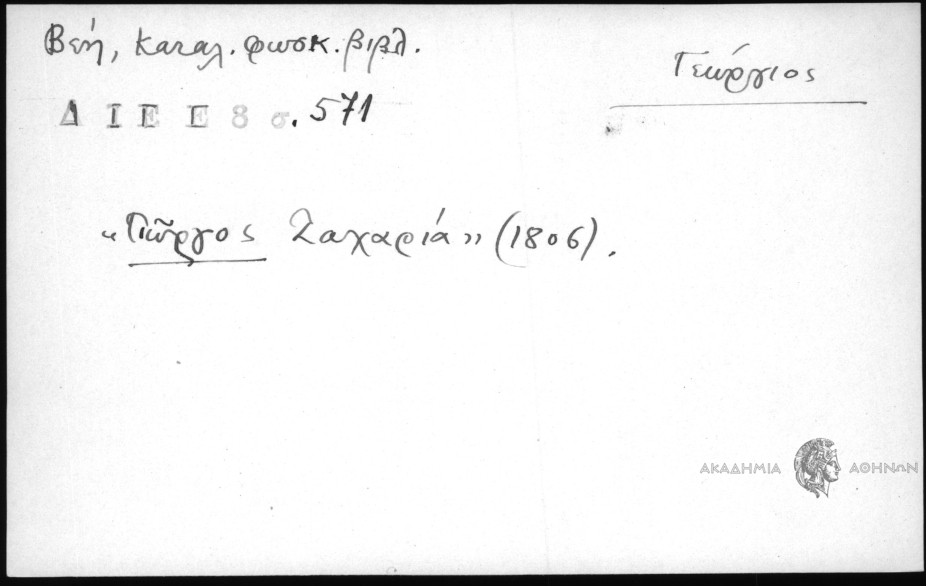 Βεή, Καταλ. φωσκ. βιβλ.
Γεώργιος
Δ Ι Ε Ε 8 σ. 571
«Γιῶργος Ζαχαριά» (1806).
ΑΚΑΔΗΜΙΑ ΑΘΗΝΩΝ